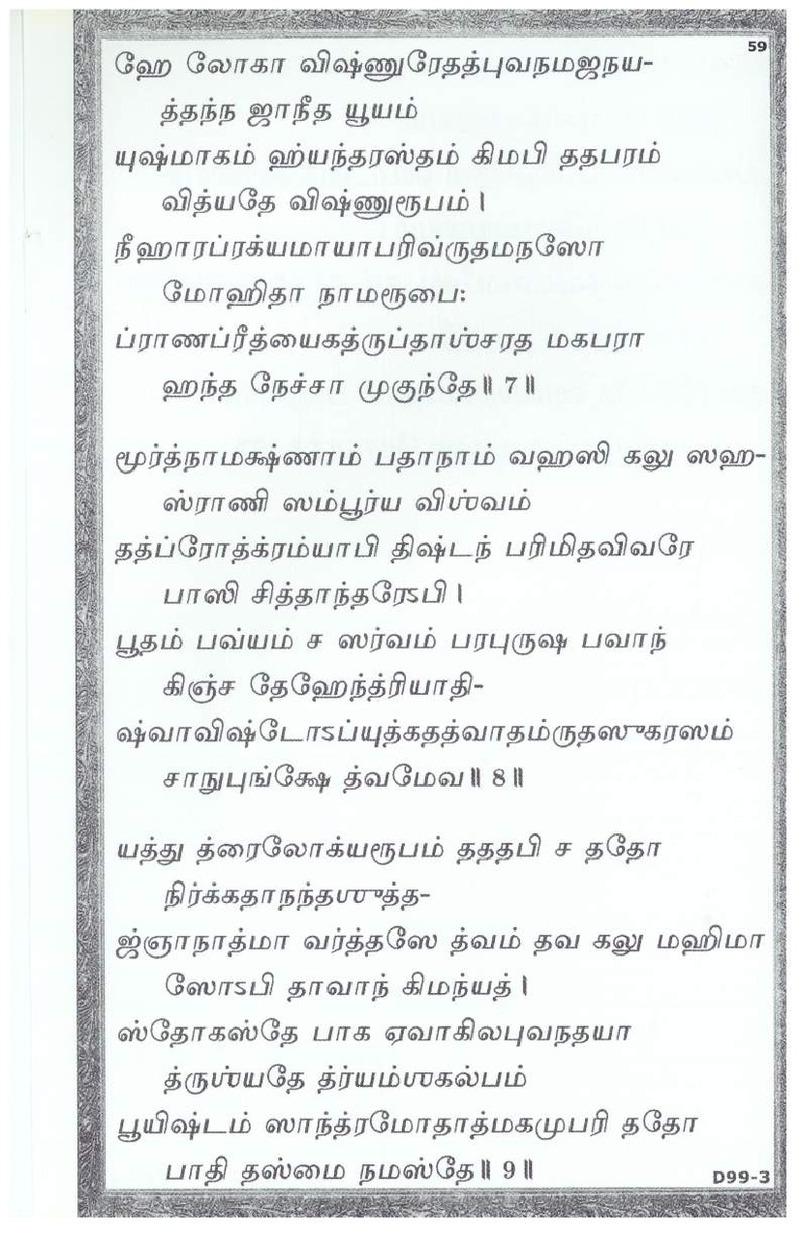 59
ஹே லோகா விஷ்ணுரேதத்புவநமஜநய-
த்தந்ந ஜாநீத யூயம்
யுஷ்மாகம் ஹ்யந்தரஸ்தம் கிமபி ததபரம்
வித்யதே விஷ்ணுரூபம்।
நீஹாரப்ரக்யமாயாபரிவ்ருதமநஸோ
மோஹிதா நாமரூபை:
ப்ராணப்ரீத்யைகத்ருப்தாஶ்சரத மகபரா
ஹந்த நேச்சா முகுந்தே॥ 7॥
மூர்த்நாமக்ஷ்ணாம் பதாநாம் வஹஸி கலு ஸஹ-
ஸ்ராணி ஸம்பூர்ய விஶ்வம்
தத்ப்ரோத்க்ரம்யாபி திஷ்டந் பரிமிதவிவரே
பாஸி சித்தாந்தரேऽபி।
பூதம் பவ்யம் ச ஸர்வம் பரபுருஷ பவாந்
கிஞ்ச தேஹேந்த்ரியாதி-
ஷ்வாவிஷ்டோऽப்யுத்கதத்வாதம்ருதஸுகரஸம்
சாநுபுங்க்ஷே த்வமேவ॥ 8॥
யத்து த்ரைலோக்யரூபம் தததபி ச ததோ
நிர்க்கதாநந்தஶுத்த-
ஜ்ஞாநாத்மா வர்த்தஸே த்வம் தவ கலு மஹிமா
ஸோऽபி தாவாந் கிமந்யத்।
ஸ்தோகஸ்தே பாக ஏவாகிலபுவநதயா
த்ருஶ்யதே த்ர்யம்ஶகல்பம்
பூயிஷ்டம் ஸாந்த்ரமோதாத்மகமுபரி ததோ
பாதி தஸ்மை நமஸ்தே॥ 9॥
D99-3